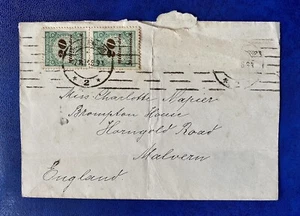 20 20
* 2 *
Miss Charlotte Napier
Brompton House
Horngold Road
Malvern
England